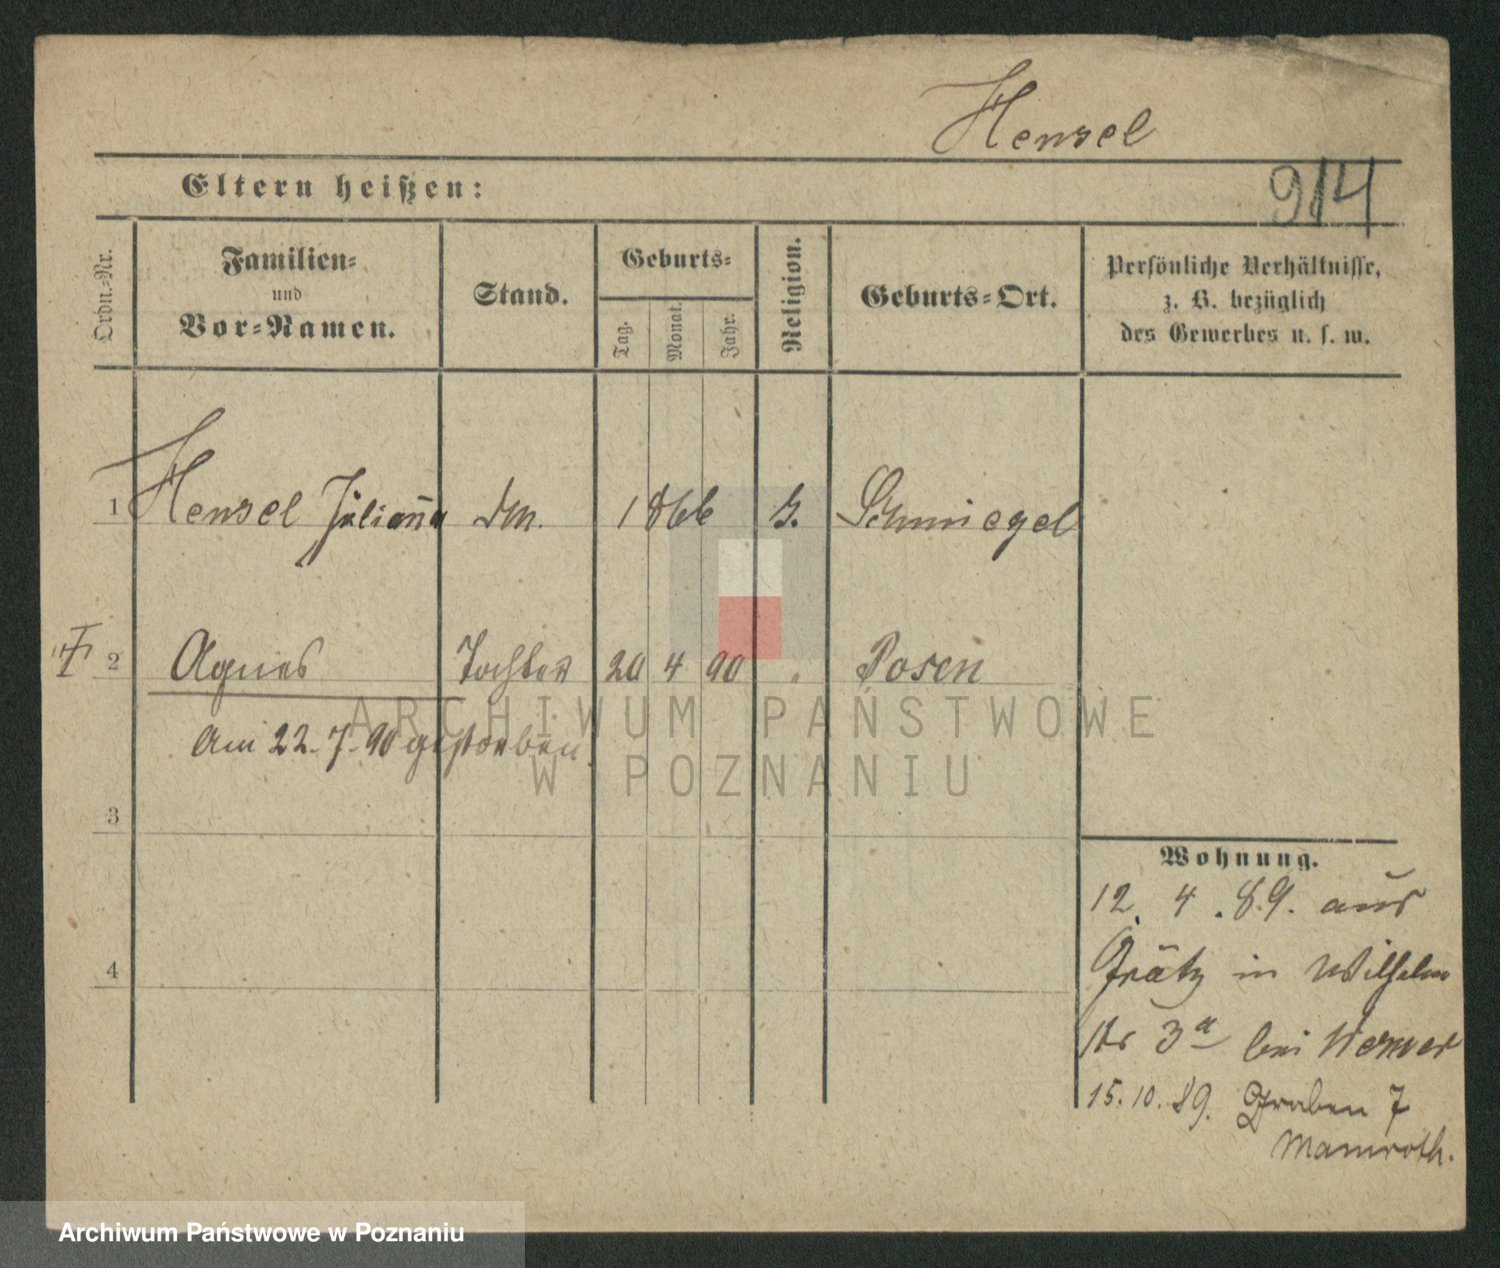 Hensel
Eltern heißen:
914
Ordn.-Nr.
Familien-
und
Vor-Namen.
Stand.
Geburts-
Tag.
Monat.
Jahr.
Religion.
Geburts-Ort.
Persönliche Verhältnisse,
z. B. bezüglich
des Gewerbes u. s. w.
1 Hensel Julianna 1866 Schmiegel
2 Agnes Tochter 20 4 90 " Posen
am 22.7.90 gestorben.
3
4
Wohnung.
12. 4. 89. aus
Grätz in Wilhelm
Nr 3a bei Werner
15.10.89. Graben 7
Mamroth.
ARCHIWUM PAŃSTWOWE
W POZNANIU
Archiwum Państwowe w Poznaniu